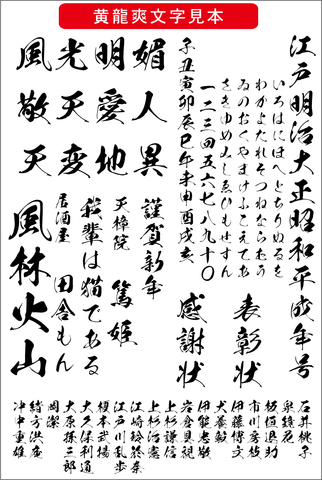 黄龍爽文字見本
江戸明治大正昭和平成年号
いろはにほへとちりぬるを
わかよたれそつねならむう
ゐのおくやまけふこえてあ
さきゆめみしゑひもせすん
一二三四五六七八九十〇
子丑寅卯辰巳午未申酉戌亥
表彰状
感謝状
媚人異
明愛地
光天変
風敬天
謹賀新年
天樟院
篤姫
我輩は猫である
居酒屋
田舎もん
風林火山
石井桃子
泉鏡花
板垣退助
市川房枝
伊藤博文
犬養毅
伊能忠敬
岩倉具視
上杉謙信
上杉治憲
江崎玲於奈
江戸川乱歩
榎本武揚
大久保利通
大原孫三郎
岡潔
緒方洪庵
沖中重雄